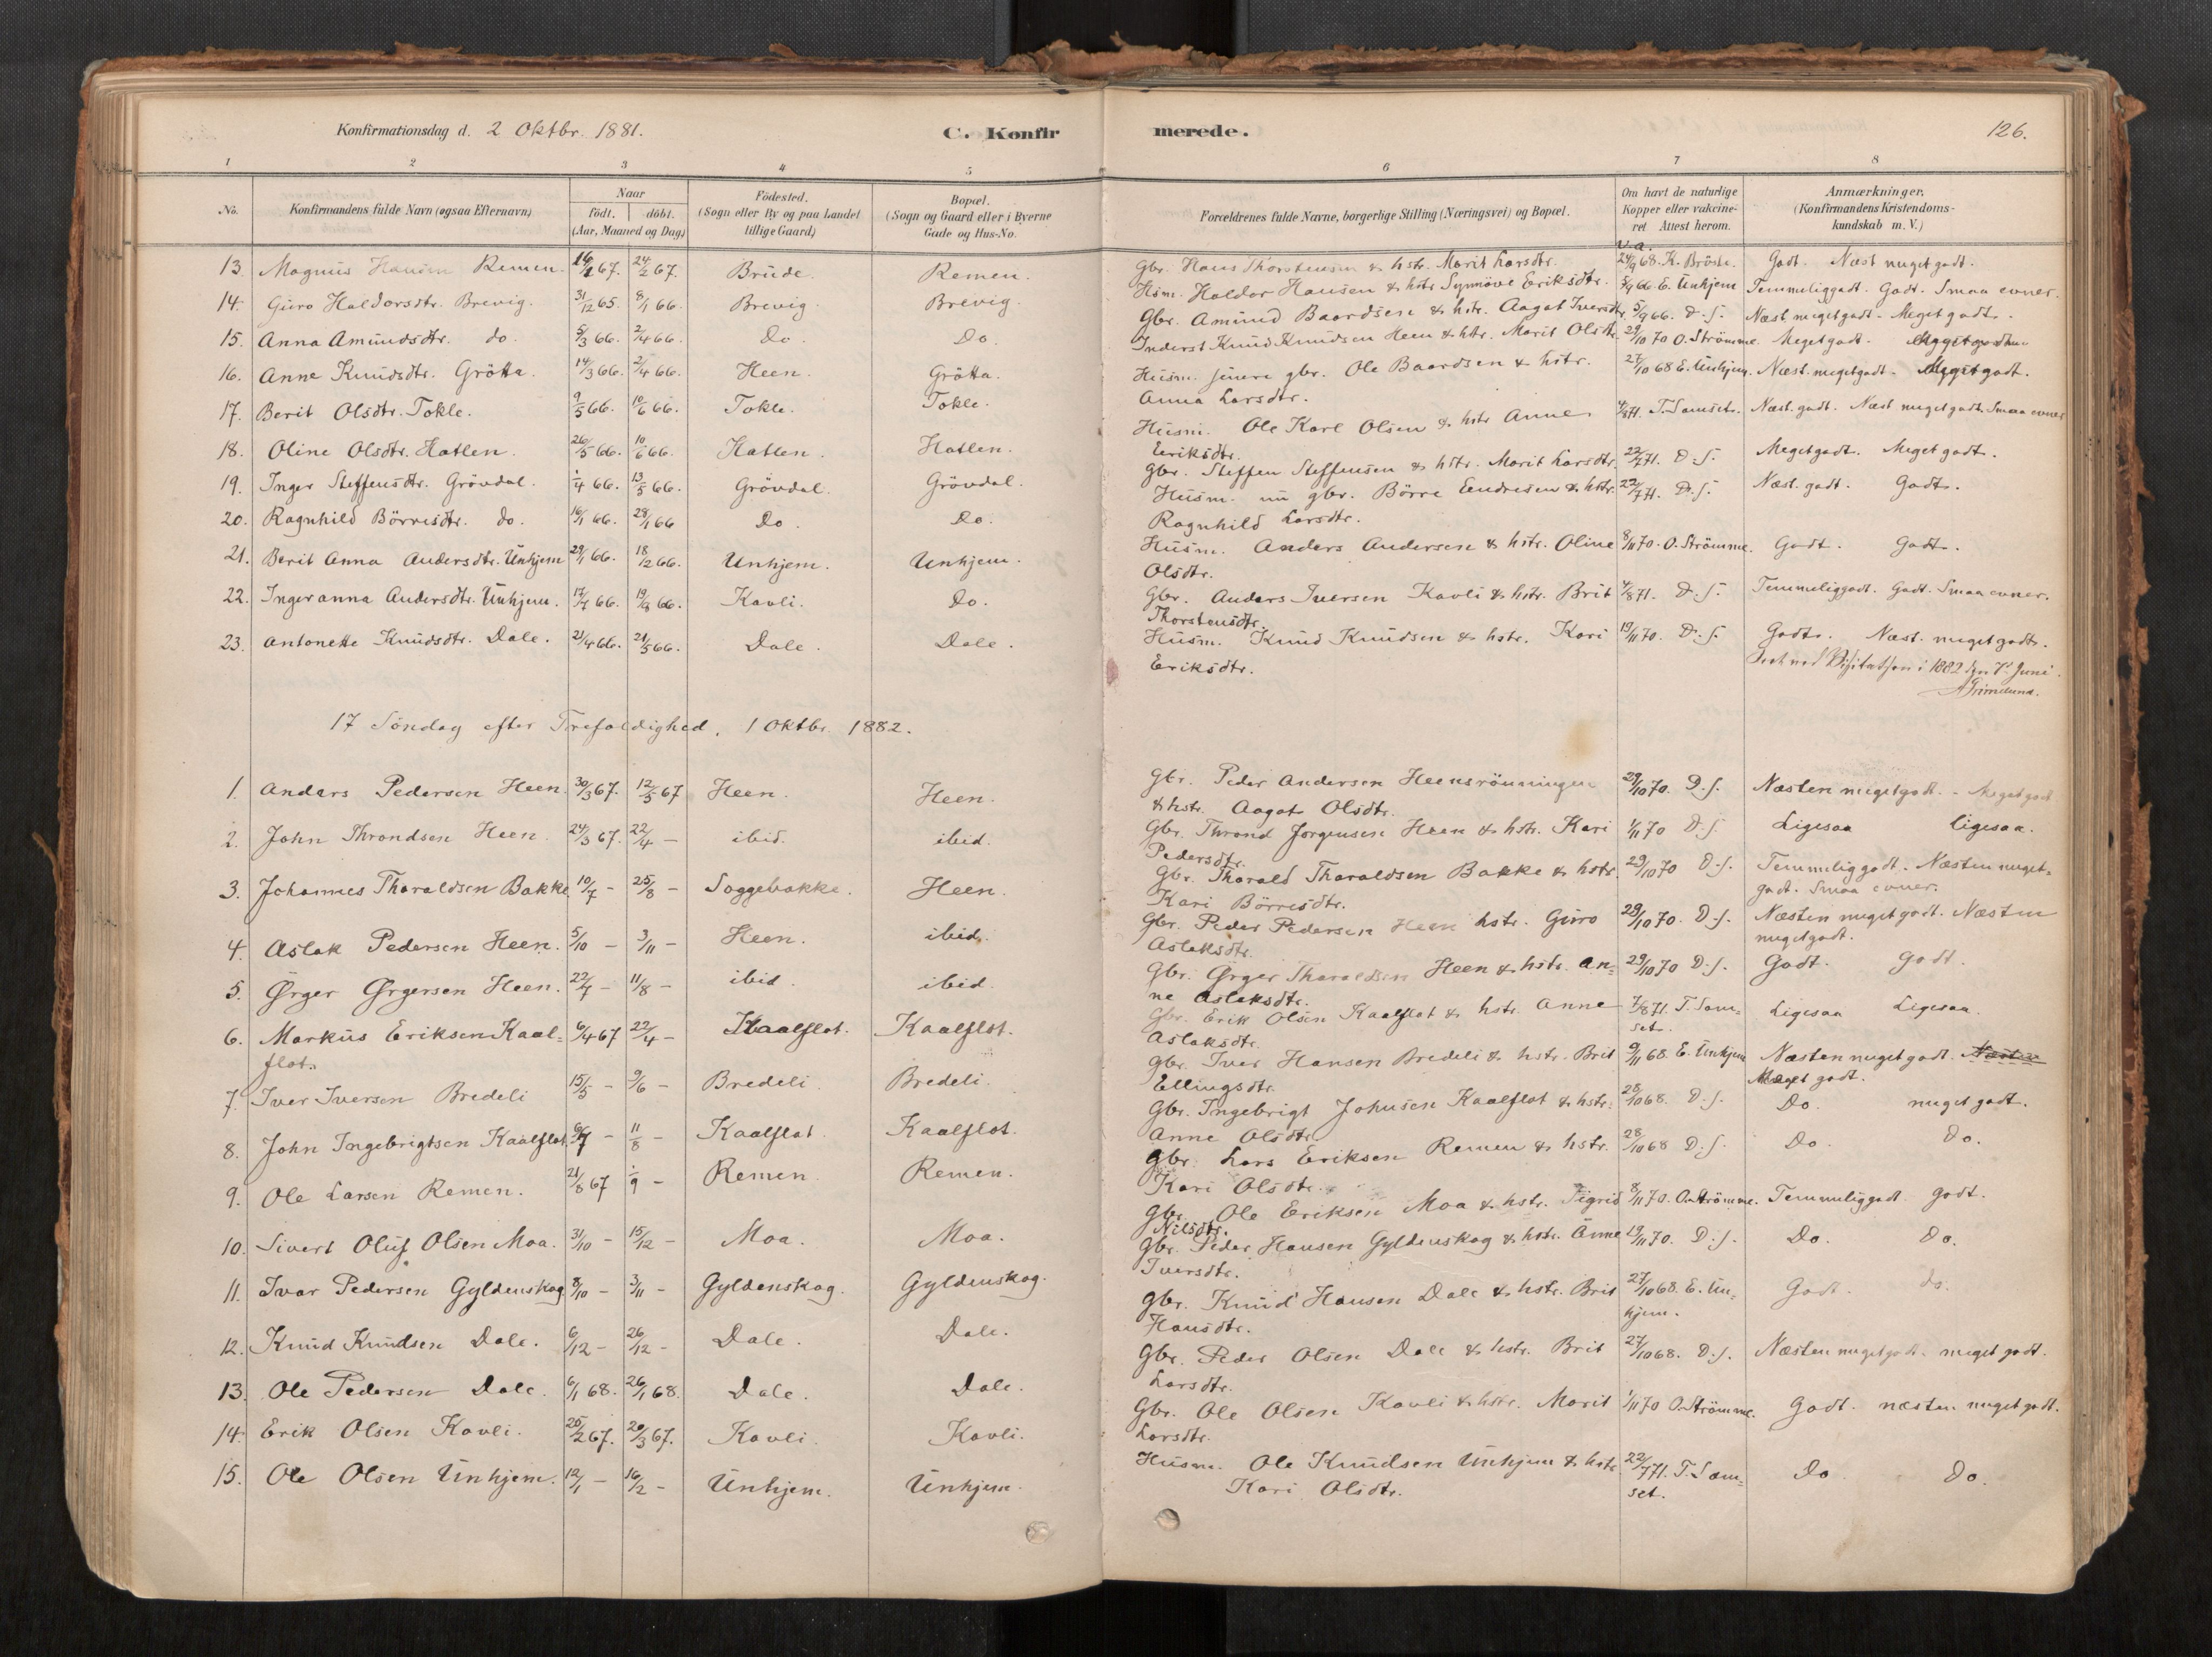 Konfirmationsdag d. 2 Oktbr. 1881. C. Konfirmerede. 126.
1 2 3 4 5 6 7 8
No. Konfirmandens fulde Navn (ogsaa Efternavn) Naar födt. döbt. (Aar, Maaned og Dag) Födested. (Sogn eller By og paa Landet tillige Gaard) Bopæl. (Sogn og Gaard eller i Byerne Gade og Hus-No. Forældrenes fulde Navne, borgerlige Stilling (Næringsvei) og Bopæl. Om havt de naturlige Kopper eller vakcineret Attest herom. Anmærkninger. (Konfirmandens Kristendomskundskab m. V.)
v. a.
13. Magnus Hansen Remen. 16/1 67. 24/2 67. Brude. Remen. Gbr. Hans Thorstensen & hstr. Marit Larsdtr. 24/9 68. K. Bröste. Godt. Næst meget godt.
14. Guro Haldorsdtr. Brevig. 31/12 65. 8/1 66. Brevig. Brevig. Hsm. Haldor Hansen & hstr Synnöve Eriksdtr. 5/9 66. E. Unhjem Temmeliggodt. Godt. Smaa evner.
15. Anna Amundsdtr. do. 5/3 66. 2/4 66. Do. Do. Gbr. Amund Baardsen & hstr. Aagot Iversdtr. 5/9 66. D. S. Næst megetgodt. Megetgodt.
16. Anne Knudsdtr. Grötta. 14/3 66. 2/4 66. Heen. Grötta. Inderst Knud Knudsen Heen & hstr. Marit Olsdtr. 29/10 70 O. Strömme. Megetgodt.
17. Berit Olsdtr. Tokle. 9/5 66. 10/6 66. Tokle. Tokle. Husm. gbr. Ole Baardsen & hstr. Anna Larsdtr. 27/10 68 E. Unhjem. Næst. megetgodt. Megetgodt.
18. Oline Olsdtr. Hatlen. 26/5 66. 10/6 66. Hatlen. Hatlen. Husm. Ole Karl Olsen & hstr Anne Eeriksdtr. 4/8 71. T. Samset. Næst. godt. Næst meget godt. Smaa evner
19. Inger Steffensdtr. Grövdal. 1/4 66. 13/5 66. Grövdal. Grövdal. Gbr. Steffen Steffensen & hstr. Marit Larsdtr. 22/7 71. D. S. Megetgodt. Meget godt.
20. Ragnhild Börresdtr. do. 16/1 66. 28/1 66 Do. Do. Husm. nu gbr. Börre Eendresen & hstr. Ragnhild Larsdtr. 22/7 71. D. S. Næst. godt. Godt.
21. Berit Anna Andersdtr. Unhjem 29/1 66. 18/2 66. Unhjem. Unhjem. Husm. Anders Andersen & hstr. Oline Olsdtr. 8/11 70. O. Strömme. Godt. Godt.
22. Inger anna Andersdtr. Unhjem. 17/7 66. 19/8 66. Kavli. Do. Gbr. Anders Iversen Kavli & hstr. Brit Thorstensdtr. 4/8 71. D. S. Temmeliggodt. Godt. Smaa evner.
23. Antonette Knudsdtr. Dale. 21/4 66. 21/5 66. Dale. Dale. Husm. Knud Knudsen & hstr. Kari Eriksdtr. 19/11 70. D. S. Godt. Næst. megetgodt.
Seet ved Visitatsen i 1882 den 7de Juni.
AGrimelund.
17 Söndag efter Trefoldighed. 1 Oktbr. 1882.
1. Anders Pedersen Heen. 30/3 67. 12/5 67 Heen. Heen. Gbr. Peder Andersen Heensrönningen & hstr. Aagot Olsdtr. 29/10 70. D. S. Næsten megetgodt. - Meget godt
2. John Throndsen Heen. 24/3 67. 22/4 - ibid. ibid. Gbr. Thrond Jorgensen Heen & hstr. Kari Pedersdtr. 1/11 70 D. S. Ligesaa ligesaa.
3. Johannes Tharaldsen Bakke 10/7 - 25/8 - Soggebakke. Heen. Gbr. Tharald Tharaldsen Bakke & hstr. Kari Börresdtr. 29/10 70 D. S. Temmeliggodt. Næsten meget- godt. Smaa evner.
4. Aslak Pedersen Heen. 5/10 - 3/11 - Heen. ibid. Gbr. Peder Pedersen Heen hstr. Guro Aslaksdtr. 29/10 70. D. S. Næsten megetgodt. Næsten megetgodt.
5. Ørger Ørgersen Heen. 22/7 - 11/8 - ibid. ibid. Gbr. Ørger Tharaldsen Heen & hstr. An- ne Aslaksdtr. 29/10 70 D. S. Godt. Godt.
6. Markus Eriksen Kaal- flot. 6/4 67 22/4 - Kaalflot. Kaalflot. Gbr. Erik Olsen Kaalflot & hstr. Anne Aslaksdtr. 7/8 71. T. Sam- set. Ligesaa Ligesaa.
7. Iver Iversen Bredeli 15/5 - 9/6 - Bredeli. Bredeli. Gbr. Iver Hansen Bredeli & hstr. Brit Ellingsdtr. 9/11 68. E. Unhjem Næsten megetgodt. Næsten Meget godt.
8. John Ingebrigtsen Kaalflot. 11/8 - Kaalflot. Kaalflot. Gbr. Ingebrigt Johnsen Kaalflot & hstr. Anne Olsdtr. 28/10 68. D. S. Do. meget godt.
9. Ole Larsen Remen. 21/8 67 1/9 - Remen. Remen. Gbr. Lars Eriksen Remen & hstr. Kari Olsdtr. 28/10 68 D. S. Do. Do.
10. Sivert Oluf Olsen Moa. 31/10 - 15/12 - Moa. Moa. Gbr. Ole Eriksen Moa & hstr. Sigrid Nilsdtr. 8/11 70. O. Strömme. Temmeliggodt. godt.
11. Ivar Pedersen Gyldenskog 8/10 - 3/11 - Gyldenskog. Gyldenskog. Gbr. Peder Hansen Gyldenskog & hstr. Anne Iversdtr. 19/11 70. D. S. Do. Do.
12. Knud Knudsen Dale. 6/12 - 26/12 - Dale. Dale. Gbr. Knud Hansen Dale & hstr. Brit Hansdtr. 27/10 68. E. Un- hjem. Godt. do.
13. Ole Pedersen Dale. 6/1 68. 26/1 68. Dale. Dale. Gbr. Peder Olsen Dale & hstr. Brit Larsdtr. 27/10 68. D. S. Næsten megetgodt. meget godt.
14. Erik Olsen Kavli. 25/2 67. 20/3 67. Kavli. Kavli. Gbr. Ole Olsen Kavli & hstr. Marit Larsdtr. 1/11 70 O. Strömme. Godt. næsten meget godt.
15. Ole Olsen Unhjem. 12/1 - 16/2 - Unhjem. Unhjem. Husm. Ole Knudsen Unhjem & hstr Kari Olsdtr. 22/7 71. T. Sam- set. Do. Do.